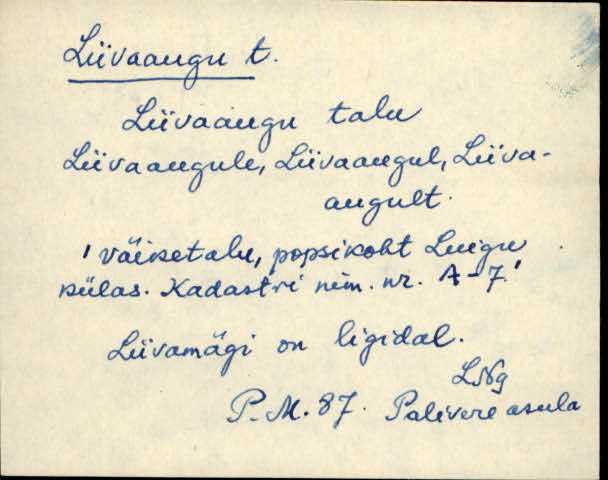 Liivaaugu t.
Liivaaugu talu
Liivaaugule, Liivaaugul, Liiva-
augult.
'väiketalu, popsikoht Luigu
külas. Kadastri nim. nr. A-7.'
Liivamägi on ligidal.
LNg
P. M. 87. Palivere asula